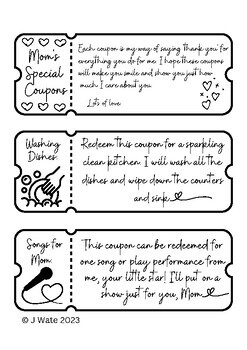 Mom's
Special
Coupons
Each coupon is my way of saying thank you for
everything you do for me. I hope these coupons
will make you smile and show you just how
much I care about you.
Lots of love:
Washing
Dishes:
Redeem this coupon for a sparkling
clean kitchen. I will wash all the
dishes and wipe down the counters
and sink.
Songs for
Mom:
This coupon can be redeemed for
one song or play performance from
me, your little star! I'll put on a
show just for you, Mom.
© J Wate 2023